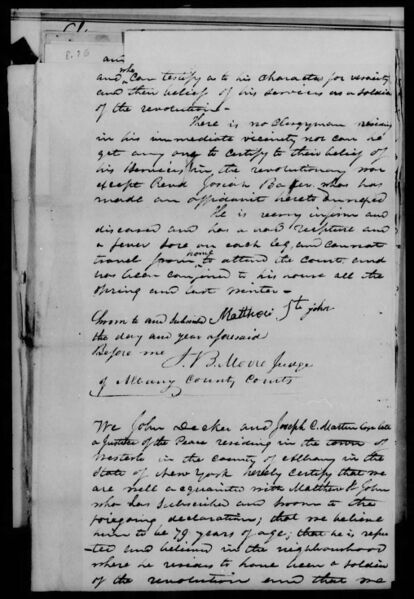 and who can testify as to his character for veracity
and their belief of his services as a soldier
of the revolution -
There is no Clergyman residing
in his immediate vicinity nor can he
get any one to certify to their belief of
his services in the revolutionary war
except Revd Josiah who has
made an affidavit hereto annexed
He is very infirm and
diseased and has a bad rupture and
a fever sore on each leg, and cannot
travel from home to attend the court, and
has been confined to his house all the
Spring and last winter -
Sworn to and subscribed Matthew St John
the day and year aforesaid
Before me
J. B. Judge
of Albany County Courts
We John Decker and Joseph C. late
a Justice of the Peace residing in the town of
Westerlo in the County of Albany in the
State of New York hereby certify that we
are well acquainted with Matthew St John
who has subscribed and sworn to the
foregoing declaration; that we believe
him to be 79 years of age; that he is repu
ted and believed in the neighbourhood
where he resides to have been a soldier
of the revolution and that we